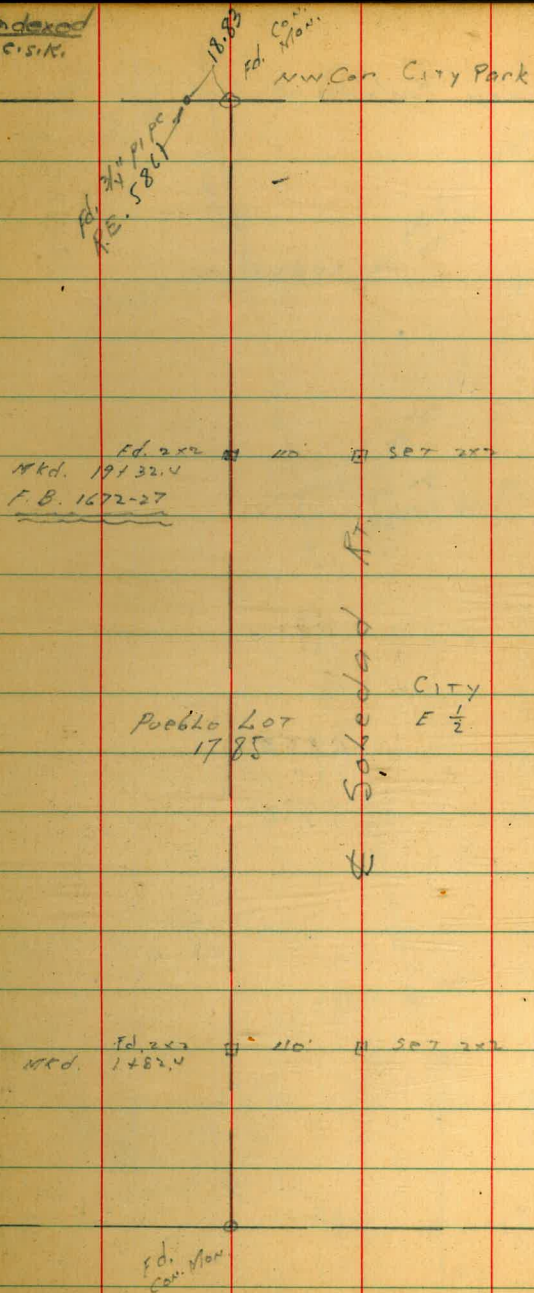 Indexed
C.S.K.
18.83
Fd. Con. Mon.
NW Cor City Park
Fd. 3/4" pipe
R.E. 5861
Fd. 2x2 110' Set 2x2
Mkd. 19+32.4
F.B. 1672-27
℄ Soledad Rd.
City
E 1/2
Pueblo Lot
1785
Fd. 2x2 110' Set 2x2
Mkd. 1+82.4
Fd.
Con. Mon.